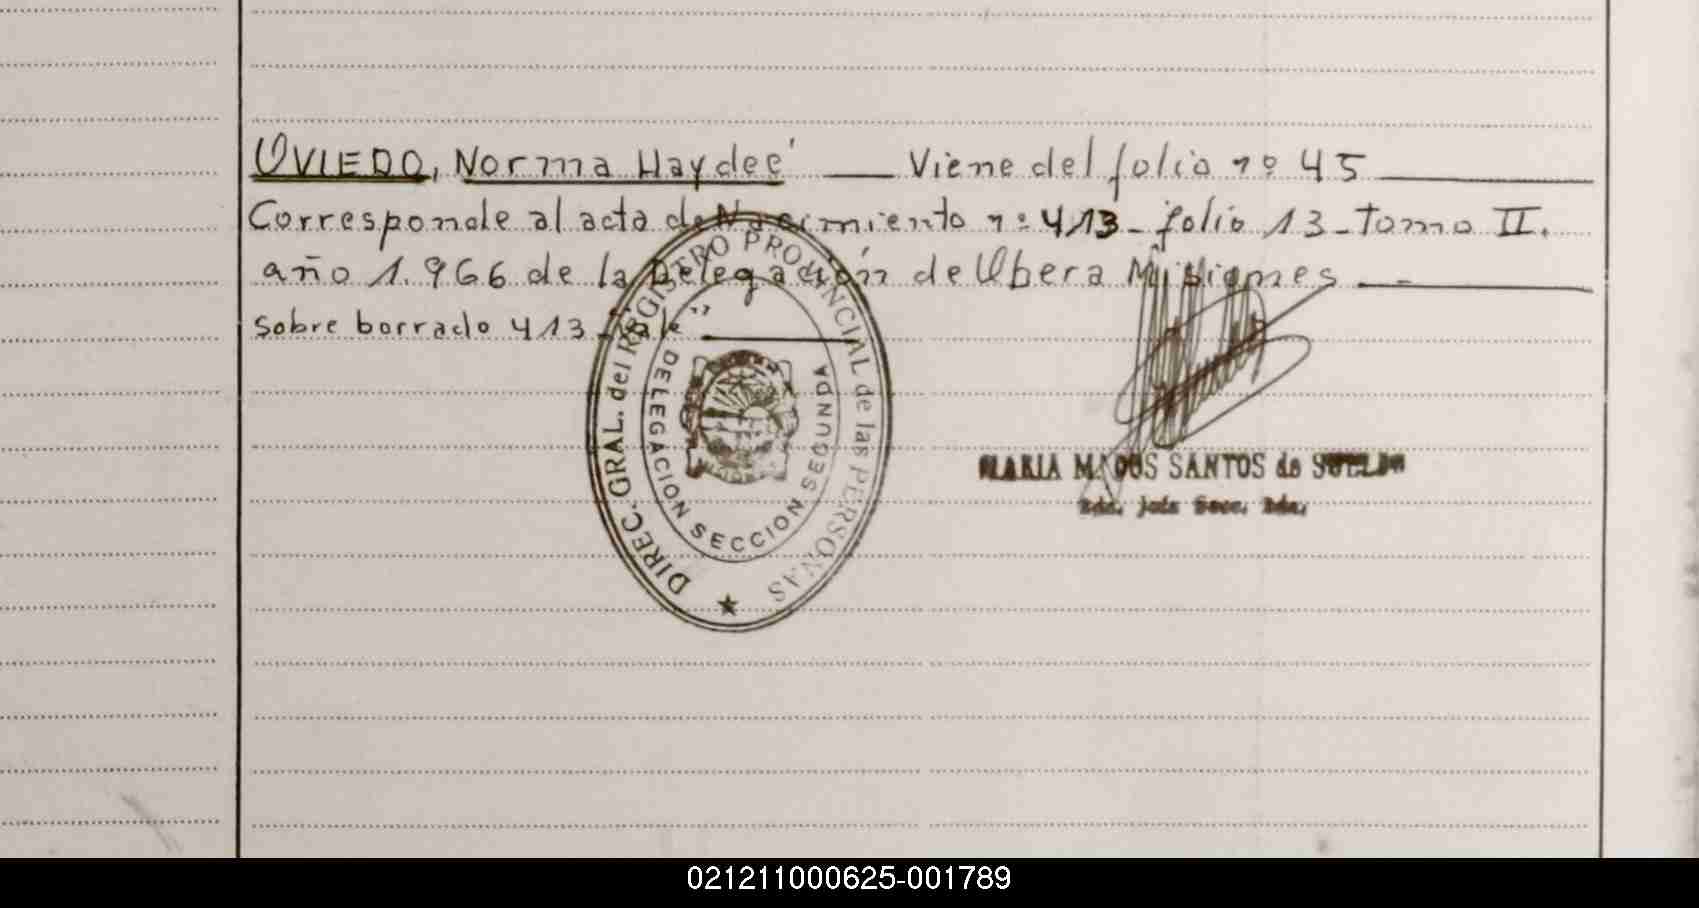 OVIEDO, Norma Haydeé ___ Viene del folio nº 45 ___
Corresponde al acta de Nacimiento nº 413 - folio 13 - tomo II.
año 1.966 de la Delegación de Obera Misiones ___
sobre borrado 413 "Vale" ___
DIREC. GRAL. del REGISTRO PROVINCIAL de las PERSONAS
DELEGACION SECCION SEGUNDA
MARIA SANTOS de
021211000625-001789